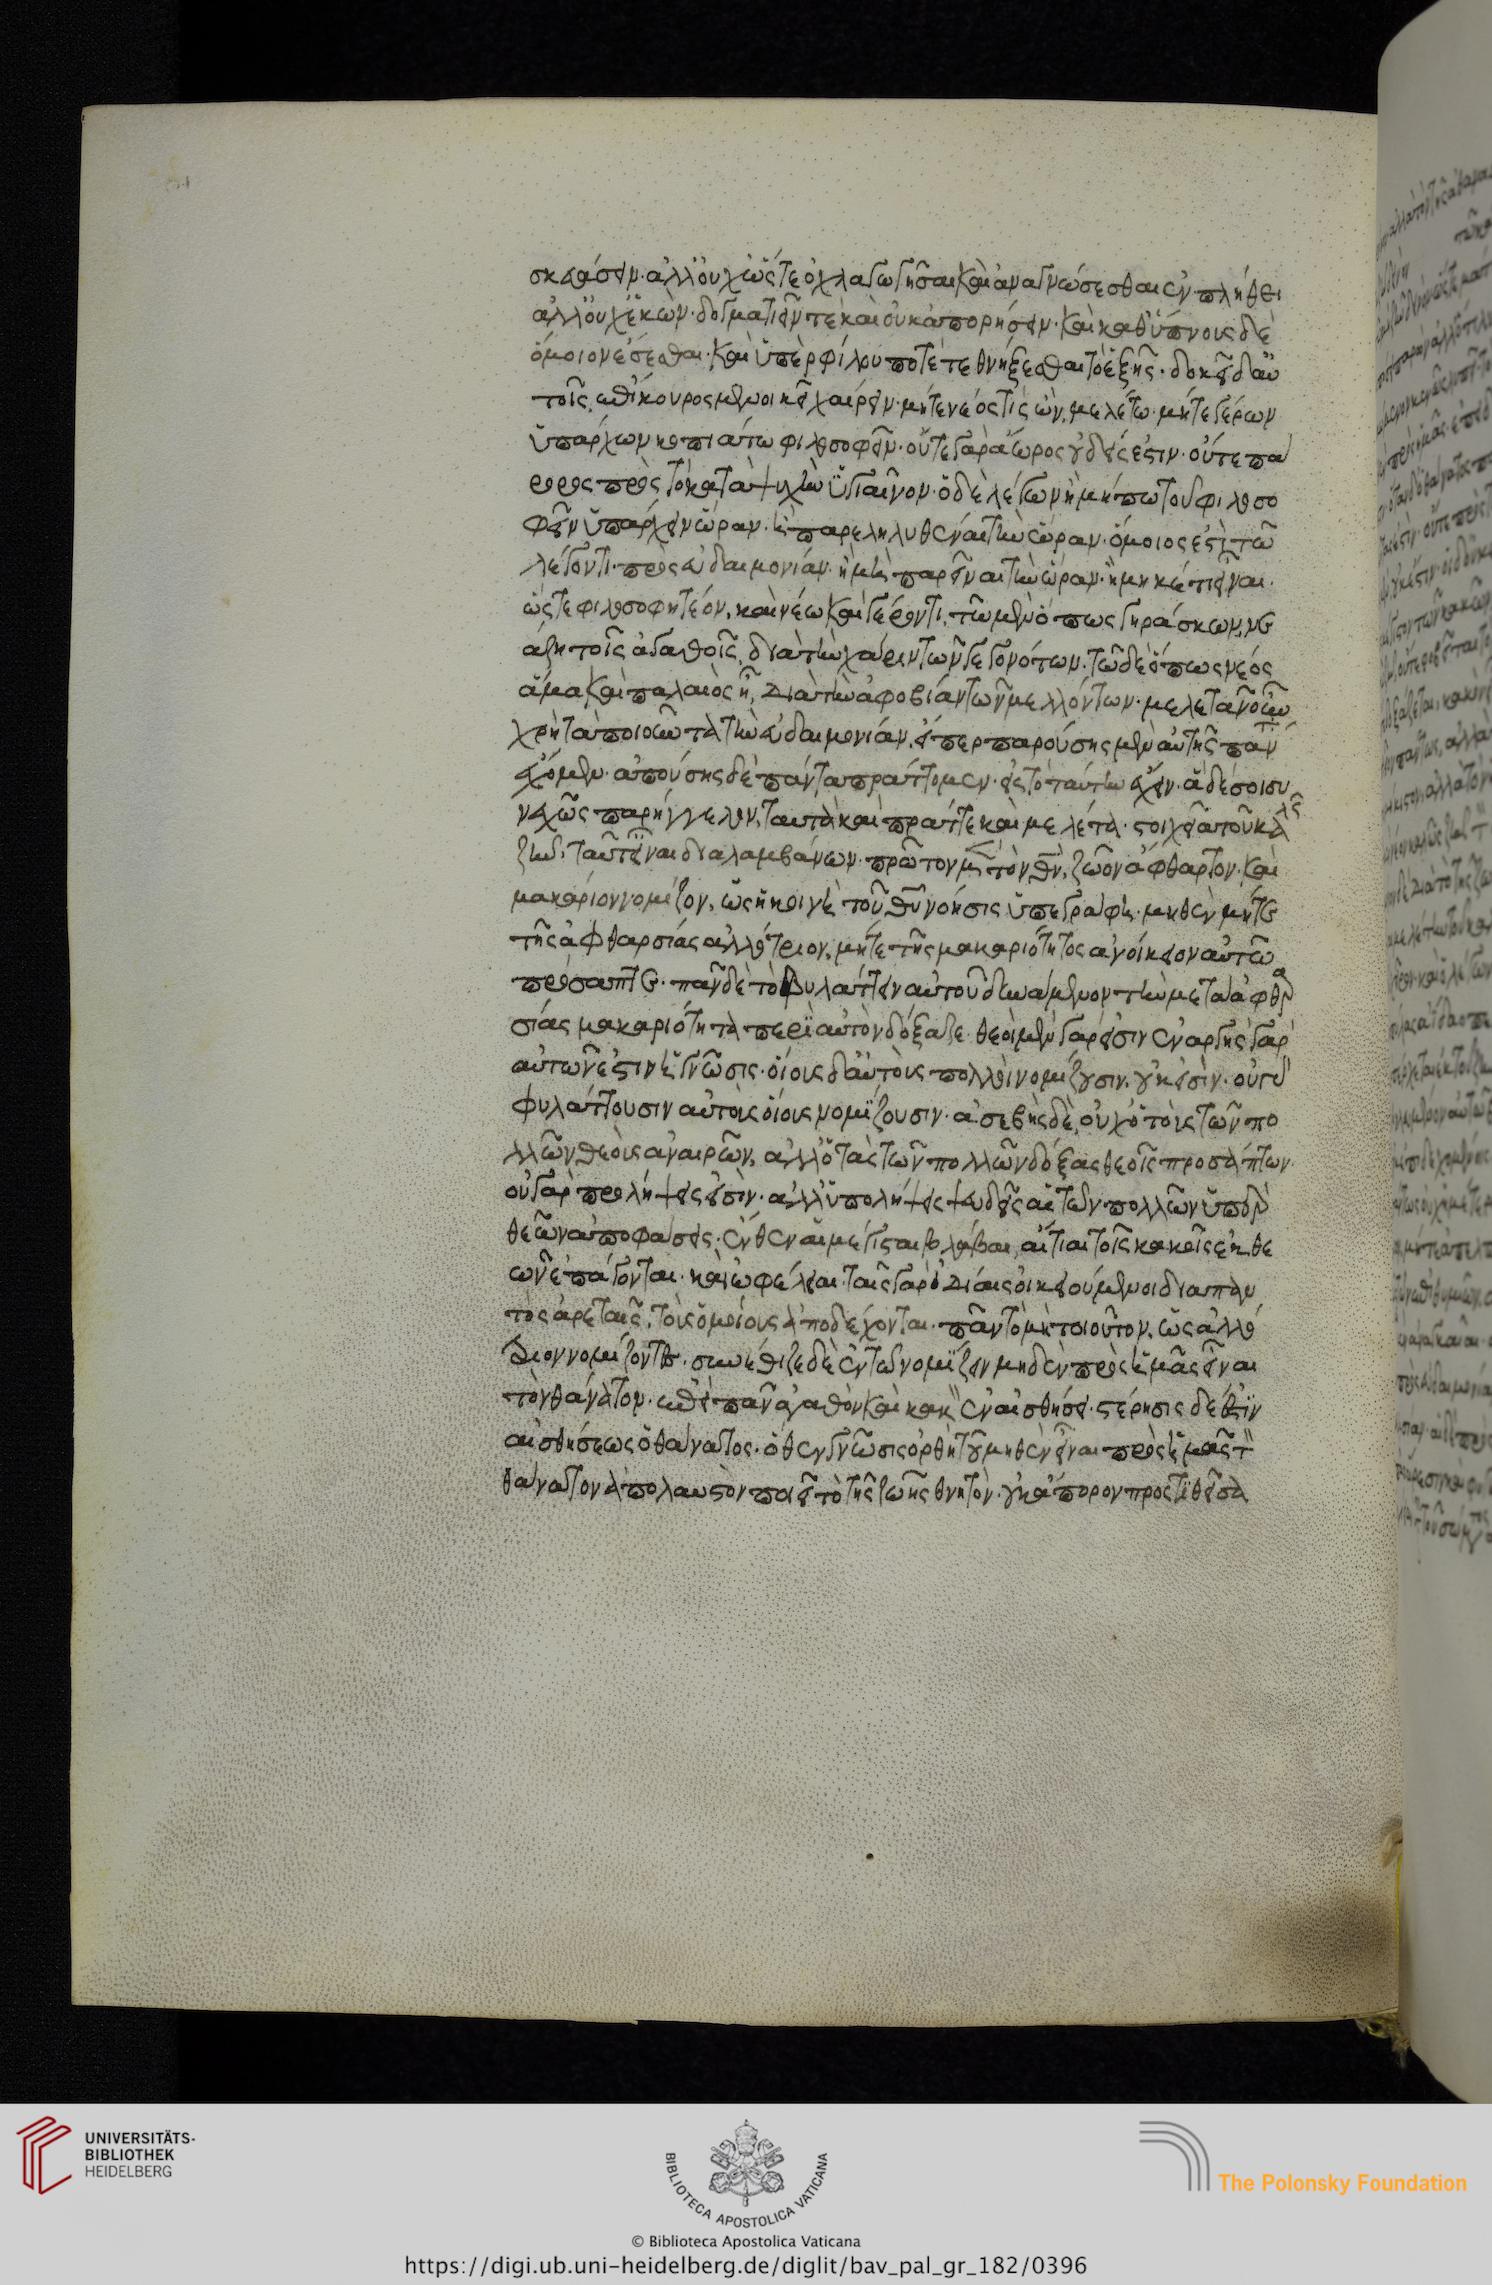 σκευάσειν· ἀλλ' οὐχ ὥστε ὀχλαγωγῆσαι καὶ ἀναγνώσεσθαι ἐν πλήθει
ἀλλ' οὐχ ἑκών· δογματιεῖν τε καὶ οὐκ ἀπορήσειν· καὶ καθ' ὕπνους δὲ
ὅμοιον ἔσεσθαι· καὶ ὑπὲρ φίλου ποτὲ τεθνήξεσθαι τὸ ἑξῆς· δοκεῖ δ' αὐ
τοῖς ἐπίκουρος μενοικεῖ χαίρειν· μήτε νέός τίς ὢν, μελέτω· μήτε γέρων
ὑπάρχων κοπιάτω φιλοσοφεῖν· οὔτε γὰρ ἄωρος οὐδείς ἐστιν· οὔτε πά
ρωρος πρὸς τὸ κατὰ ψυχὴν ὑγιαῖνον· ὁ δὲ λέγων ἢ μήπω τοῦ φιλοσο
φεῖν ὑπάρχειν ὥραν· ἢ παρεληλυθέναι τὴν ὥραν· ὅμοιος ἐστὶ τῶ
λέγοντι· πρὸς εὐδαιμονίαν· ἢ μὴ παρεῖναι τὴν ὥραν· ἢ μηκέτι εἶναι·
ὥστε φιλοσοφητέον, καὶ νέω καὶ γέροντι, τῶ μὲν ὅπως γηράσκων, νε
άζη τοῖς ἀγαθοῖς, διὰ τὴν χάριν τῶν γεγονότων· τῶ δὲ ὅπως νεός
ἅμα καὶ παλαιὸς ἦ, διὰ τὴν ἀφοβίαν τῶν μελλόντων· μελετᾶν οὖν
χρὴ τὰ ποιοῦντα τὴν εὐδαιμονίαν, εἴπερ παρούσης μὲν αὐτῆς πάν
ἔχομεν· ἀπούσης δὲ πάντα πράττομεν· εἰς τὸ ταύτην ἔχειν· ἃ δέ σοι συ
νεχῶς παρήγγελον, ταῦτα καὶ πράττε καὶ μελέτα· στοιχεῖα τοῦ καλῶς
ζῆν· ταῦτ' εἶναι διαλαμβάνων· πρῶτον μὲν τὸν θν, ζῶον ἄφθαρτον καὶ
μακάριον νομίζον, ὡς ἡ κοινὴ τοῦ θυ νόησις ὑπεγράφη· μηθὲν μήτε
τῆς ἀφθαρσίας ἀλλότριον, μήτε τῆς μακαριότητος ἀνοίκειον αὐτῶ
πρόσαπτε· πᾶν δὲ τὸ φυλάττειν αὐτοῦ δυνάμενον τὴν μετὰ ἀφθαρ
σίας μακαριότητα περὶ αὐτὸν δόξαζε· θεοὶ μὲν γάρ εἰσιν ἐναργὴς γὰρ
αὐτῶν ἐστιν ἡ γνῶσις· οἵους δ' αὐτοὺς πολλοὶ νομίζουσιν, οὐκ εἰσίν· οὐ γὰρ
φυλάττουσιν αὐτοὺς οἵους νομίζουσιν· ἀσεβὴς δὲ, οὐχ ὁ τοὺς τῶν πο
λλῶν θεοὺς ἀναιρῶν, ἀλλ' ὁ τὰς τῶν πολλῶν δόξας θεοῖς προσάπτων·
οὐ γὰρ προλήψεις εἰσὶν· ἀλλ' ὑπολήψεις ψευδεῖς αἱ τῶν πολλῶν ὑπὲρ
θεῶν ἀποφάσεις· ἔνθεν αἱ μέγισται βλάβαι, αἴτιαι τοῖς κακοῖς ἐκ θε
ῶν ἐπάγονται· καὶ ὠφέλειαι· ταῖς γὰρ ἰδίαις οἰκειούμενοι διαπαν
τὸς ἀρεταῖς, τοὺς ὁμοίους ἀποδέχονται· πᾶν τὸ μὴ τοιοῦτον, ὡς ἀλλό
τριον νομίζοντες· συνέθιζε δὲ ἐν τῶ νομίζειν μηδὲν πρὸς ἡμᾶς εἶναι
τὸν θάνατον· ἐπεὶ πᾶν ἀγαθὸν καὶ κακὸν ἐν αἰσθήσει· στέρησις δέ ἐστιν
αἰσθήσεως ὁ θάνατος· ὅθεν γνῶσις ὀρθὴ τοῦ μηθὲν εἶναι πρὸς ἡμᾶς τὸν
θάνατον ἀπολαυστὸν ποιεῖ τὸ τῆς ζωῆς θνητόν· οὐκ ἄπορον προστιθεῖσα
UNIVERSITÄTS-
BIBLIOTHEK
HEIDELBERG
BIBLIOTECA APOSTOLICA VATICANA
The Polonsky Foundation
© Biblioteca Apostolica Vaticana
https://digi.ub.uni-heidelberg.de/diglit/bav_pal_gr_182/0396